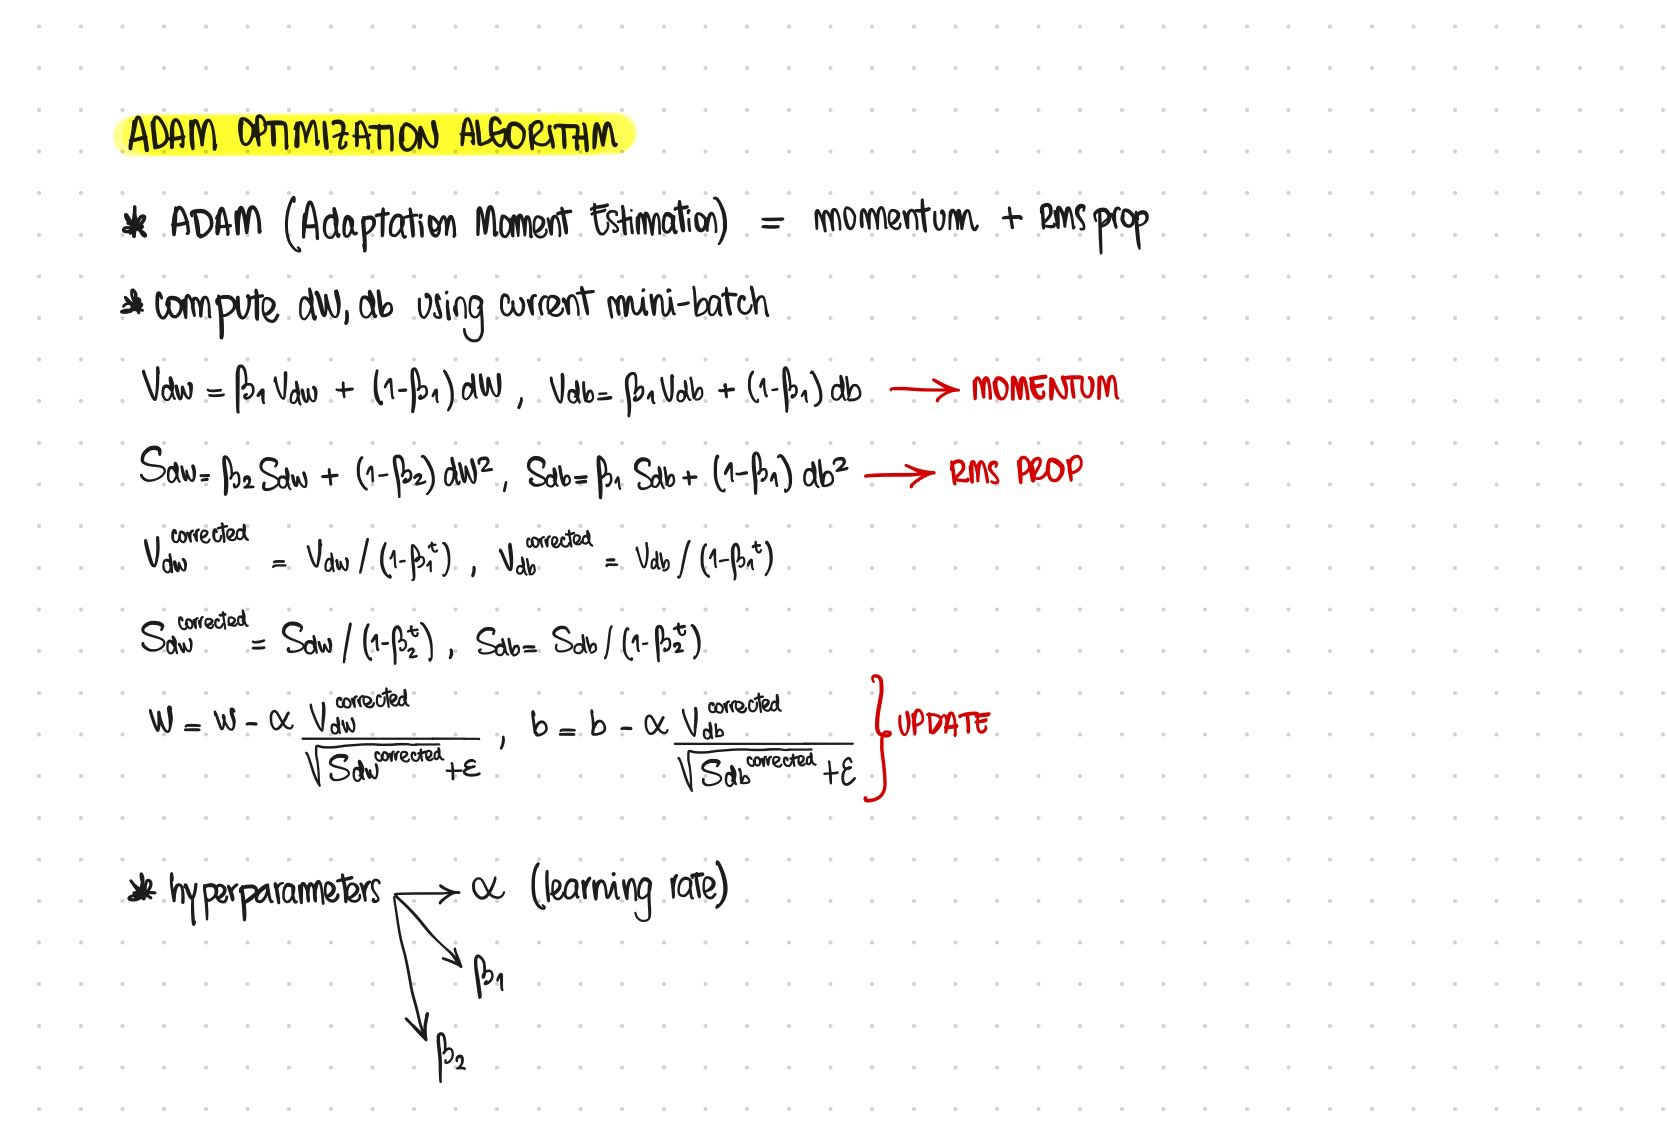 ADAM OPTIMIZATION ALGORITHM
* ADAM (Adaptation Moment Estimation) = momentum + RMS prop
* compute dW, db using current mini-batch
V_dw = β₁ V_dw + (1-β₁) dW, V_db = β₁ V_db + (1-β₁) db → MOMENTUM
S_dw = β₂ S_dw + (1-β₂) dW², S_db = β₁ S_db + (1-β₁) db² → RMS PROP
V_dw^corrected = V_dw / (1-β₁^t), V_db^corrected = V_db / (1-β₁^t)
S_dw^corrected = S_dw / (1-β₂^t), S_db = S_db / (1-β₂^t)
W = W - α V_dw^corrected / (√S_dw^corrected + ε), b = b - α V_db^corrected / (√S_db^corrected + ε) } UPDATE
* hyperparameters → α (learning rate)
β₁
β₂